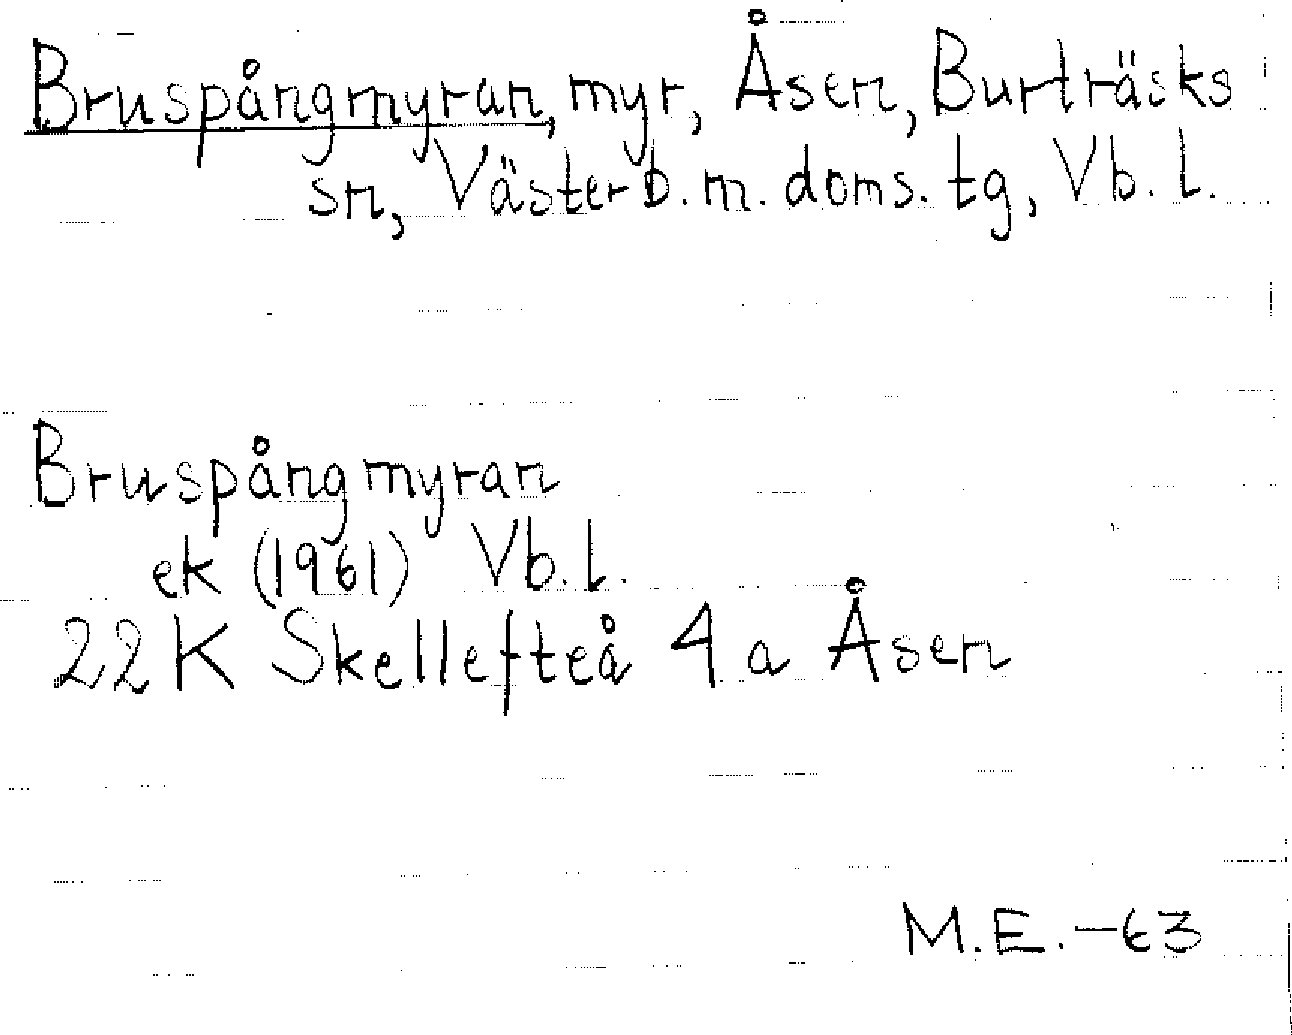 Bruspångmyran, myr, Åsen, Burträsks
sn, Västerb.m. doms. tg, Vb. l.
Bruspångmyran
ek (1961) Vb. l.
22K Skellefteå 4a Åsen
M.E. -63